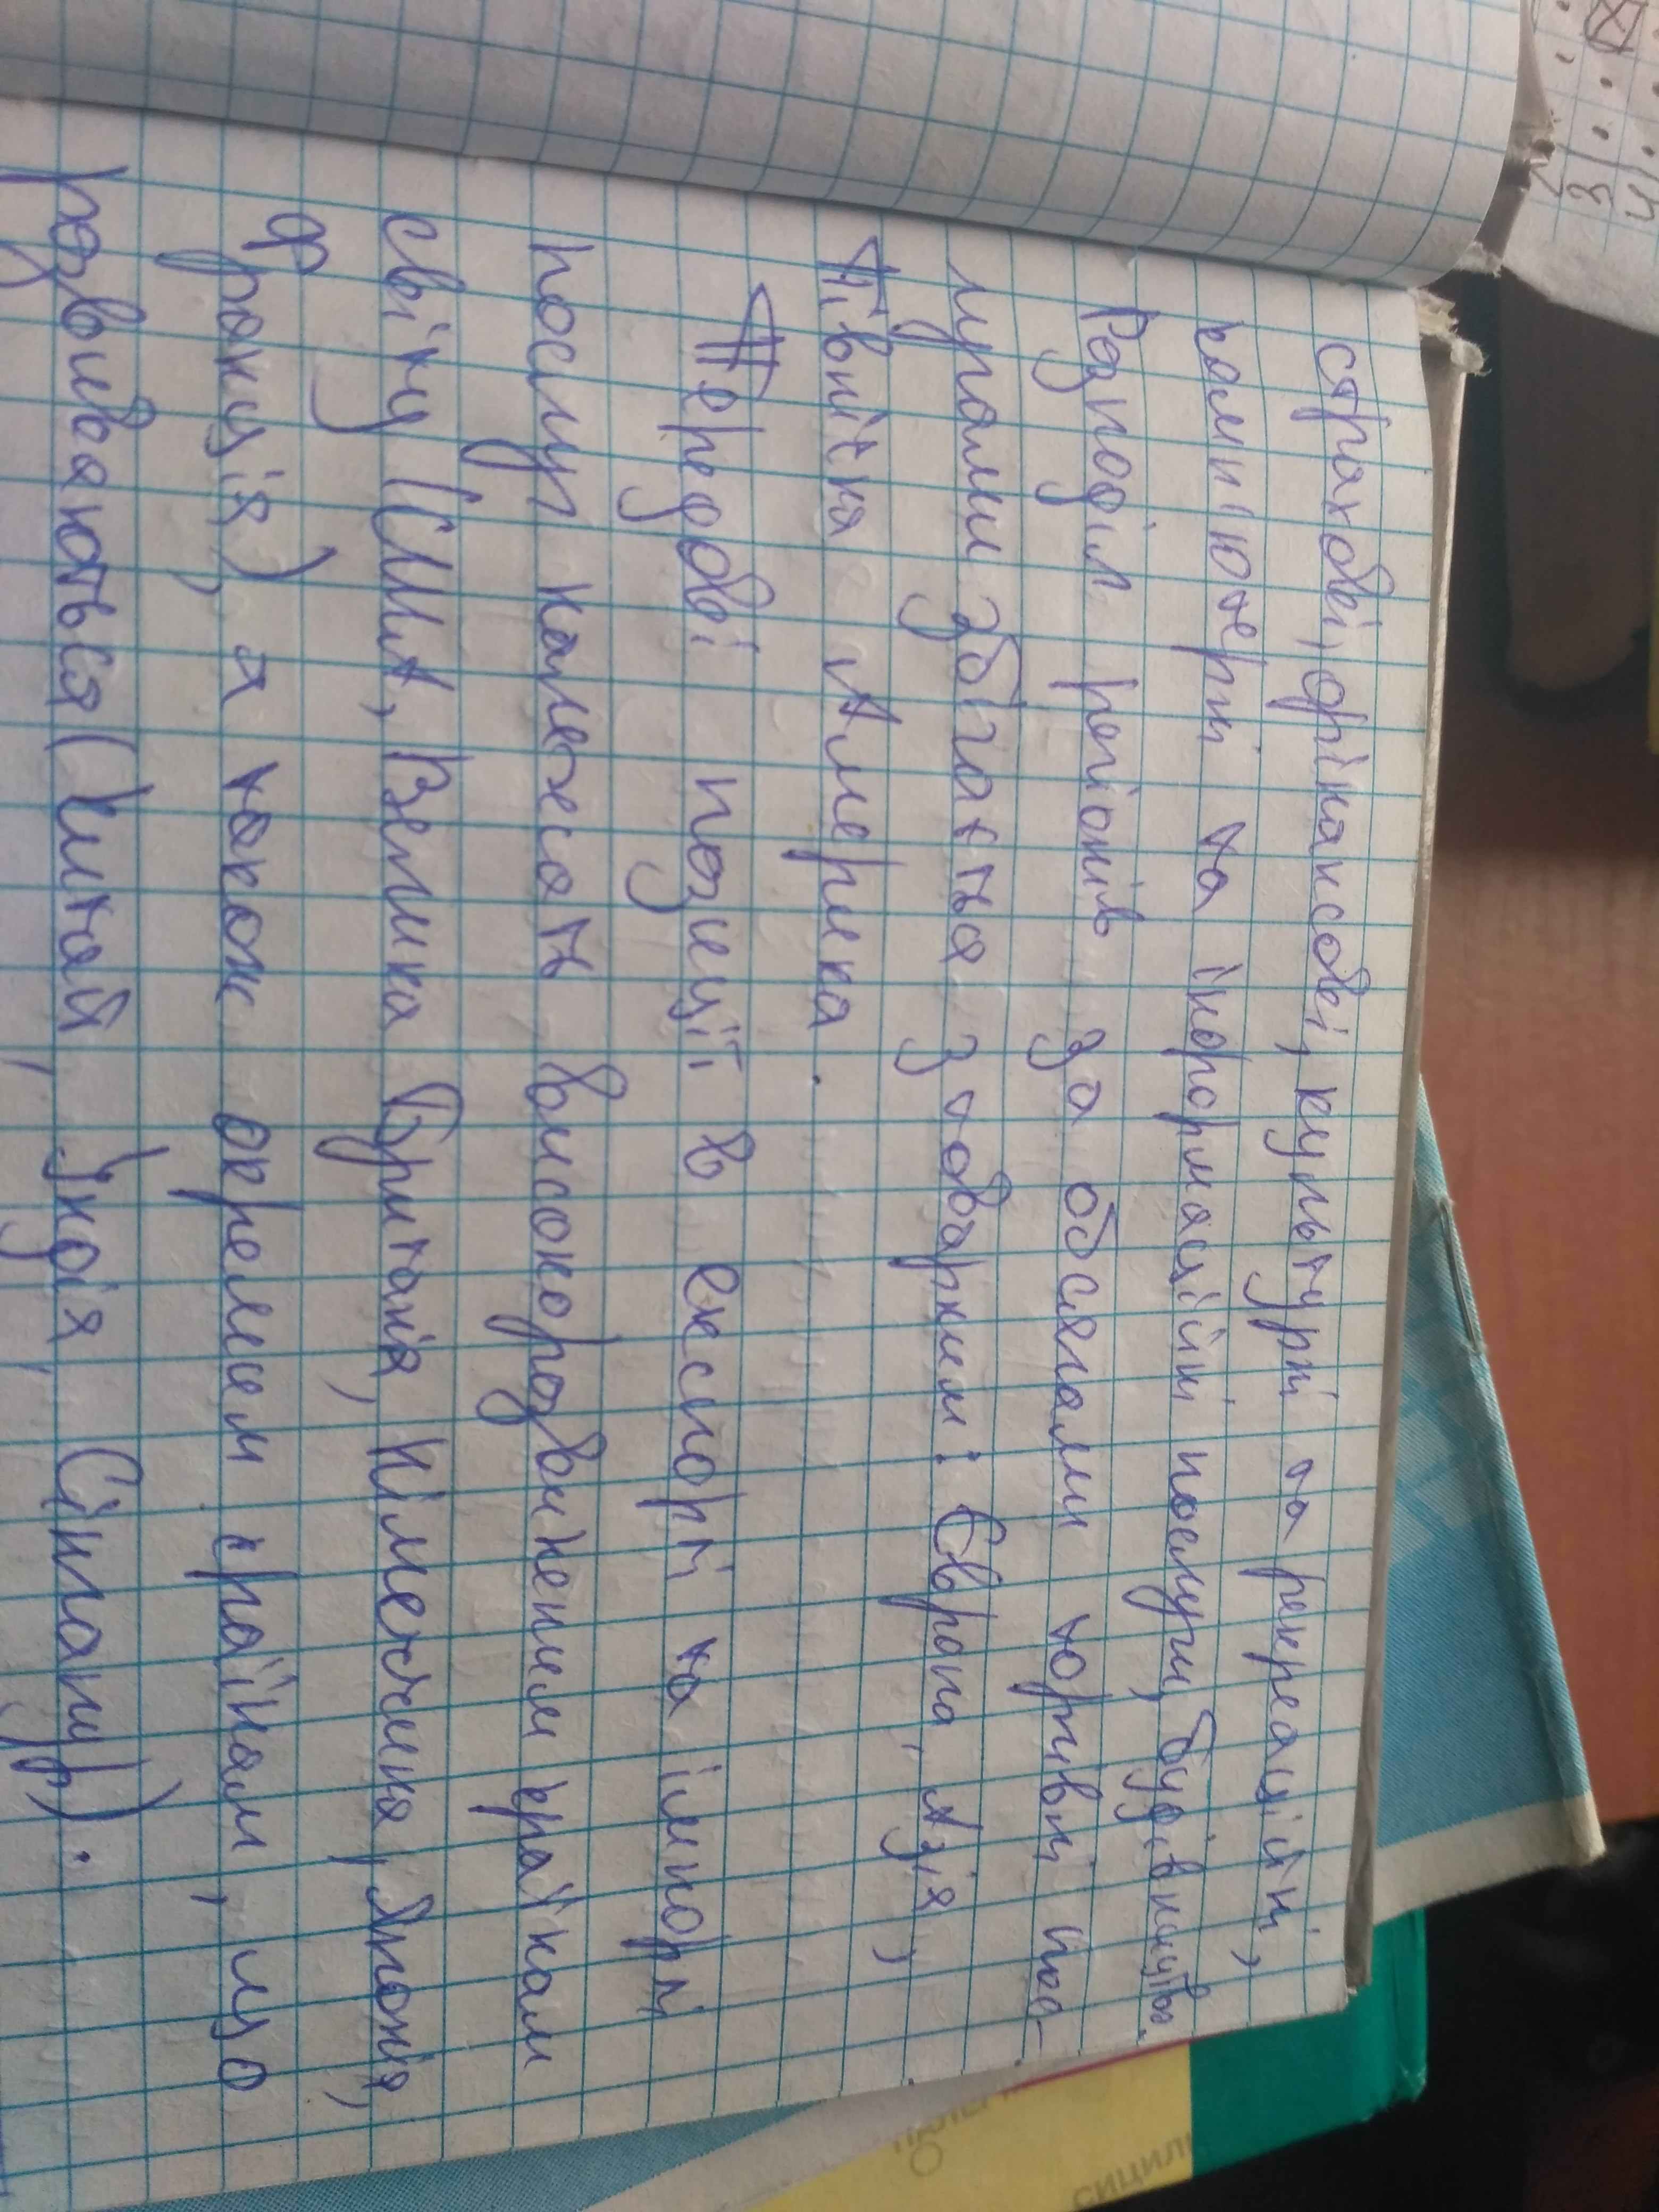 страхові, фінансові, культурні та рекреаційні,
комп'ютерні та інформаційні послуги, будівництво.
Розподіл регіонів за обсягами торгівлі пос-
лугами збігається з товарними: Європа, Азія,
Північна Америка.
Передові позиції в експорті та імпорті
послуг належать високорозвиненим країнам
світу (США, Велика Британія, Німеччина, Японія,
Франція), а також окремим країнам, що
розвиваються (Китай, Індія, Сінгапур).
3
4
СИЦИЛІ